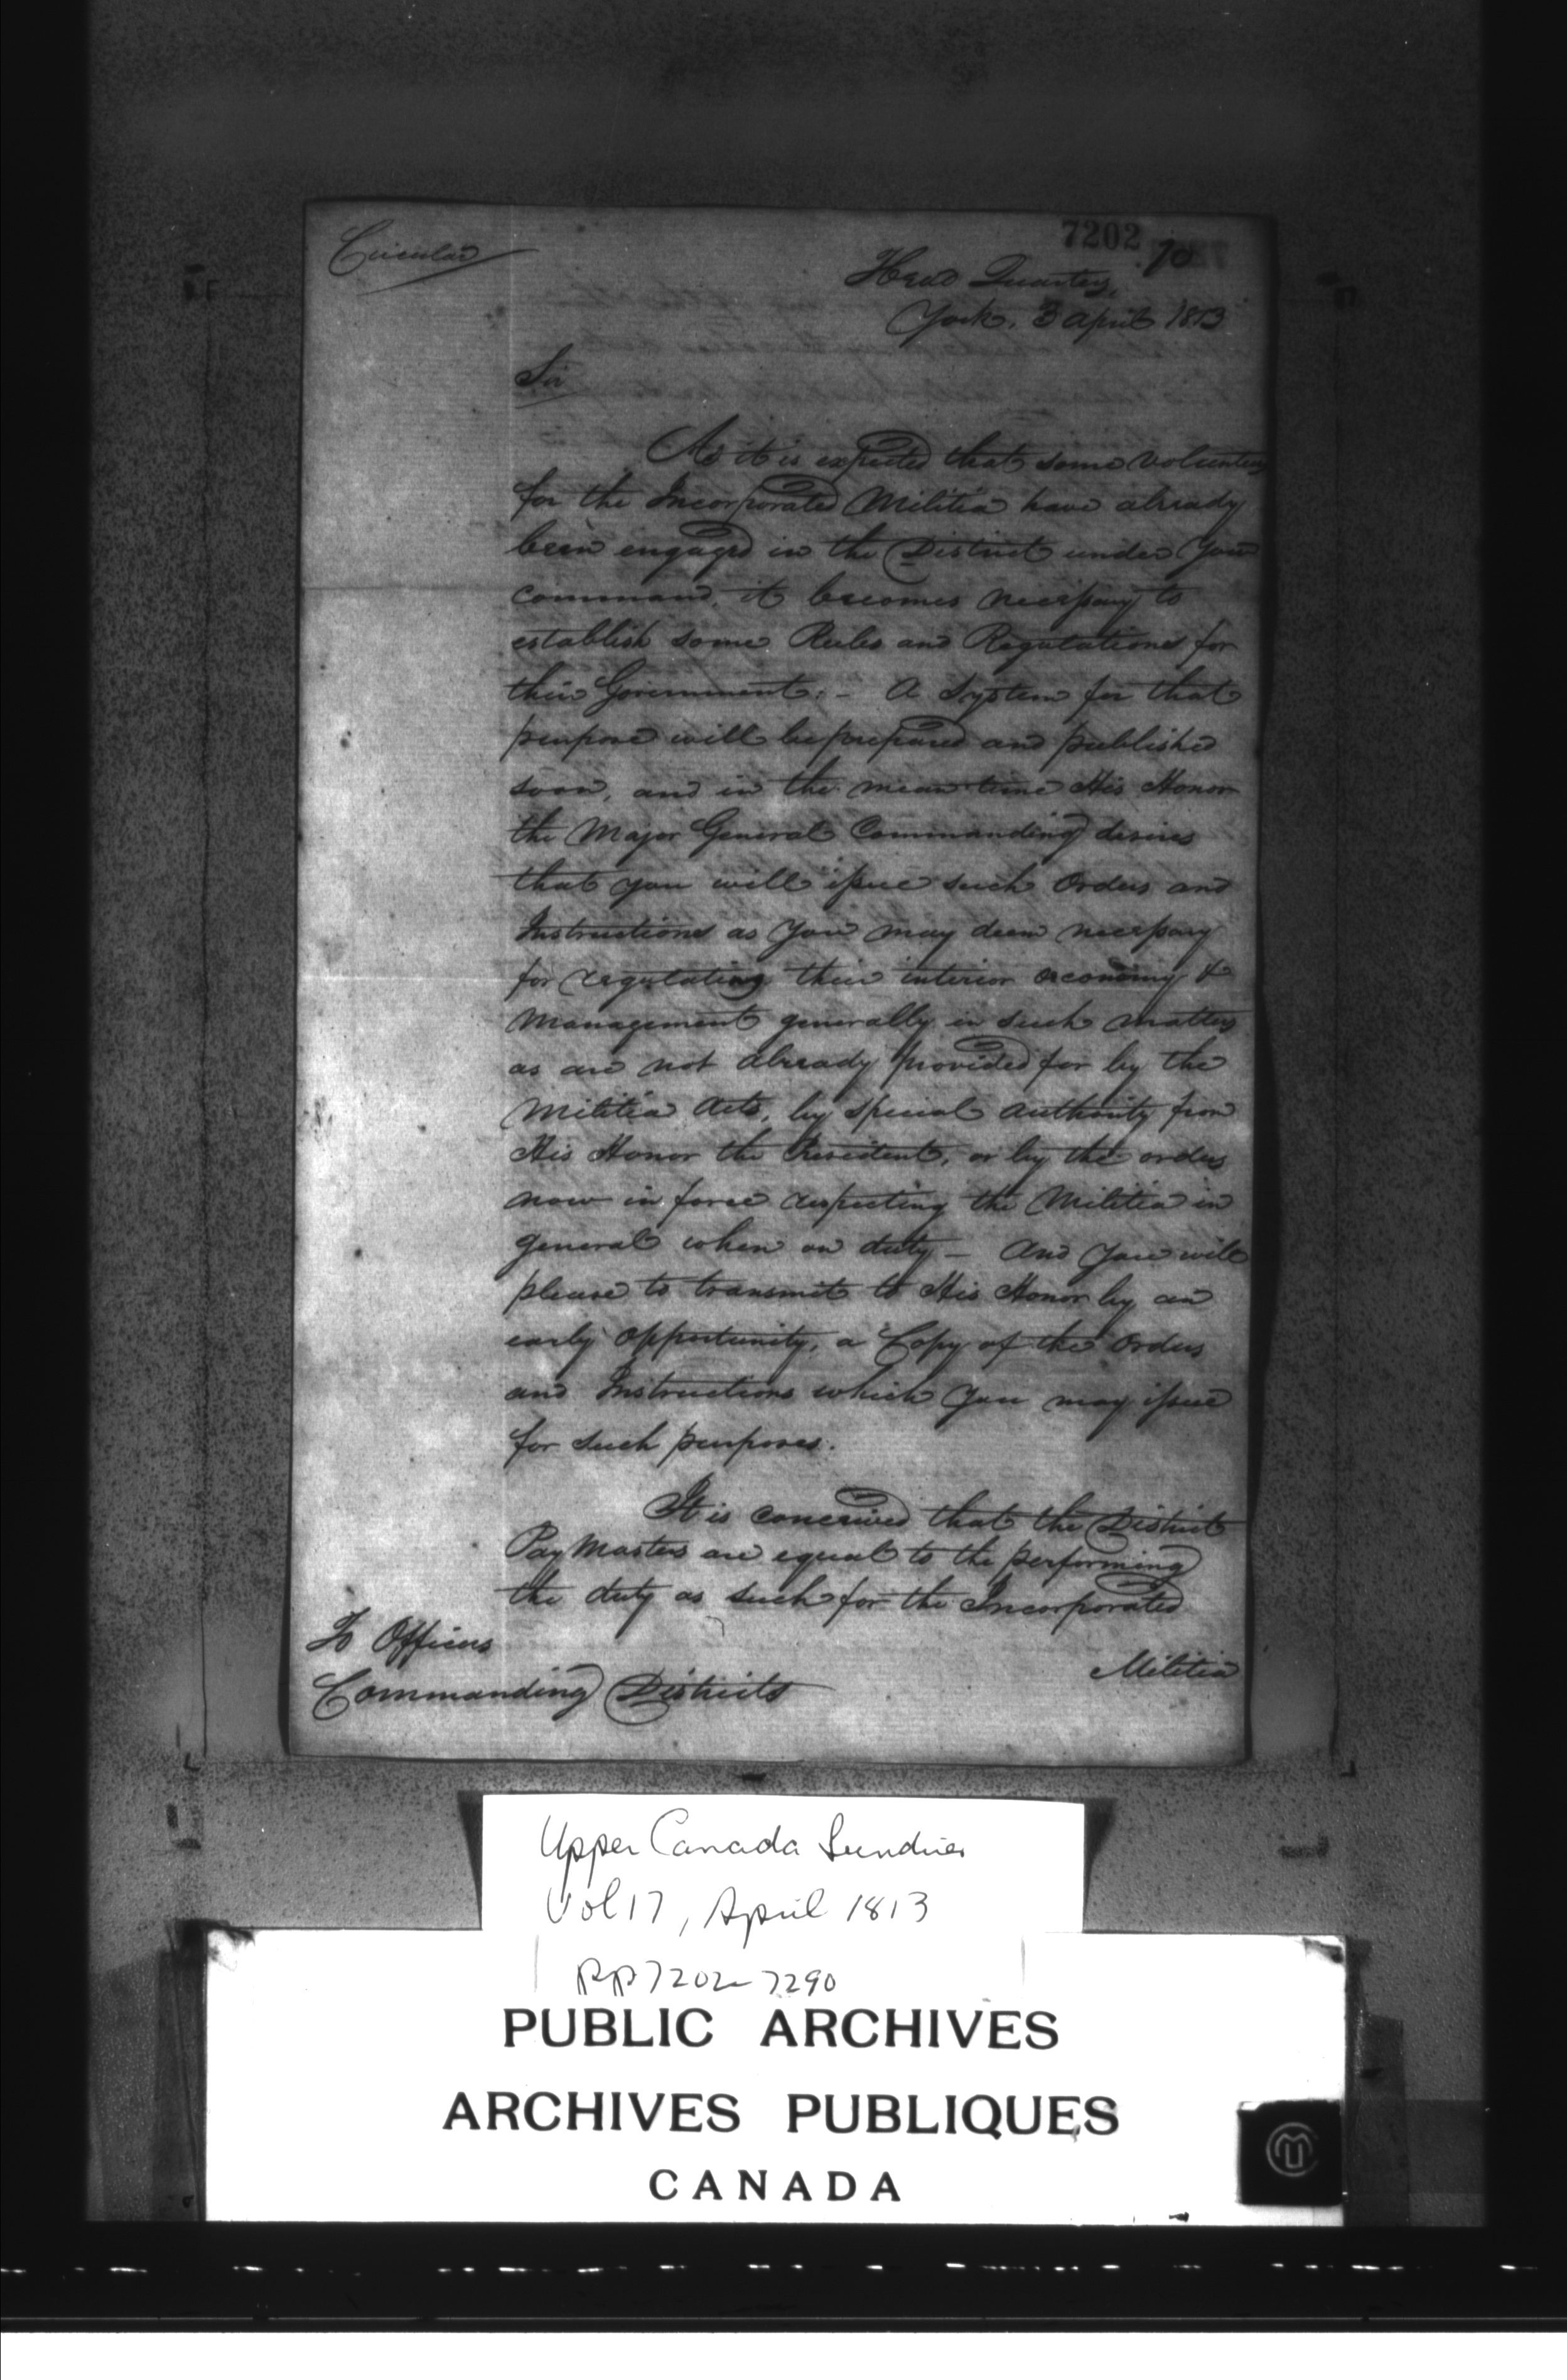 7202
Circular
70
Head Quarters,
York, 3 April 1813
Sir
As it is expected that some Volunteers
for the Incorporated Militia have already
been engaged in the District under Your
command, it becomes necessary to
establish some Rules and Regulations for
their Government:- A System for that
purpose will be prepared and published
soon, and in the mean time His Honor
the Major General Commanding desires
that you will issue such Orders and
Instructions as You may deem necessary
for regulating their interior oeconomy &
Management generally in such matters
as are not already provided for by the
Militia Acts, by special authority from
His Honor the President, or by the orders
now in force respecting the Militia in
general when on duty - And You will
please to transmit to His Honor by an
early opportunity, a Copy of the Orders
and Instructions which You may issue
for such purposes.
It is conceived that the District
Pay Masters are equal to the performing
the duty as such for the Incorporated
Militia
To Officers
Commanding Districts
Upper Canada Sundries
Vol 17, April 1813
pp 7202-7290
PUBLIC ARCHIVES
ARCHIVES PUBLIQUES
CANADA